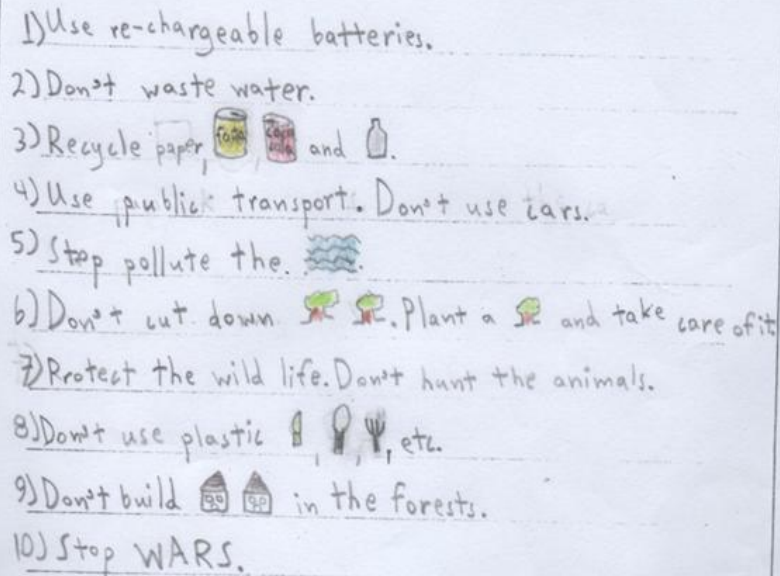 1) Use re-chargeable batteries.
2) Don't waste water.
3) Recycle paper, and .
4) Use public transport. Don't use cars.
5) Stop pollute the .
6) Don't cut down . Plant a and take care of it
7) Protect the wild life. Don't hunt the animals.
8) Don't use plastic , , , etc.
9) Don't build in the forests.
10) Stop WARS.